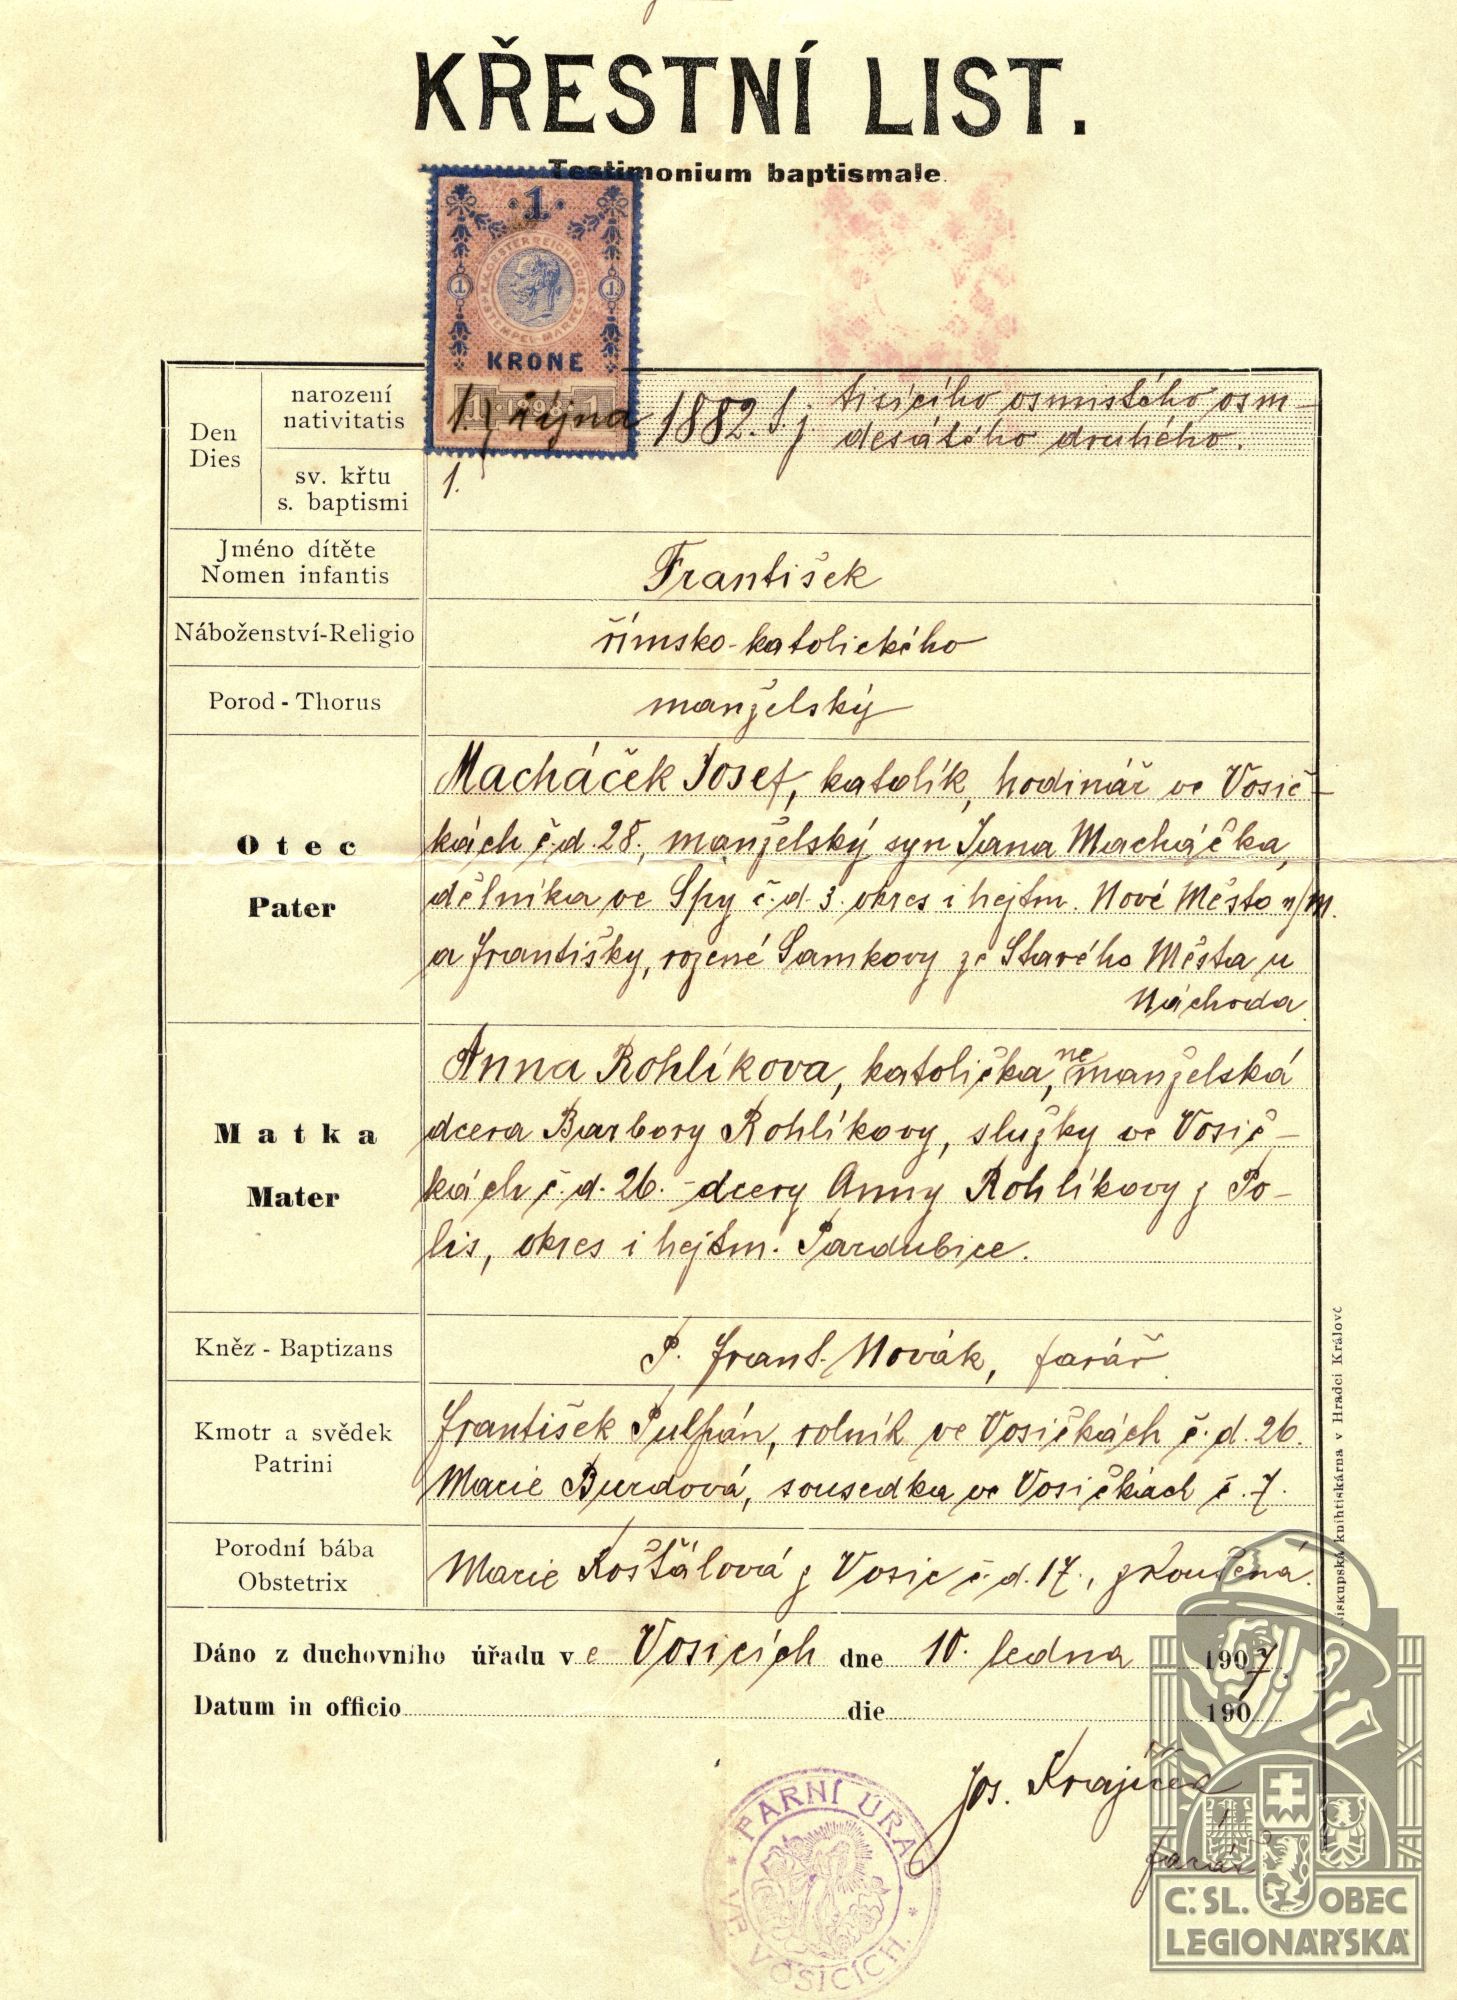 KŘESTNÍ LIST.
Testimonium baptismale.
·1·
K.K. OESTERREICHISCHE
STEMPEL-MARKE
1 1
KRONE
1 1898 1
Den
Dies
narození
nativitatis
1. října 1882. t.j. tisícího osmistého osm-
desátého druhého.
sv. křtu
s. baptismi
1.
Jméno dítěte
Nomen infantis
František
Náboženství-Religio
římsko-katolického
Porod - Thorus
manželský
Otec
Pater
Macháček Josef, katolík, hodinář ve Vosič-
kách č.d. 28., manželský syn Jana Macháčka,
dělníka ve Spy č.d. 3. okres i hejtm. Nové Město n/M.
a Františky, rozené Samkovy ze Starého Města u
Náchoda.
Matka
Mater
Anna Rohlíkova, katolička, nemanželská
dcera Barbory Rohlíkovy, služky ve Vosič-
kách č.d. 26. - dcery Anny Rohlíkovy z Po-
lis, okres i hejtm. Pardubice.
Kněz - Baptizans
P. Frant. Novák, farář.
Kmotr a svědek
Patrini
František Pulpán, rolník ve Vosičkách č.d. 26.
Marie Burdová, sousedka ve Vosičkách č. 7.
Porodní bába
Obstetrix
Marie Košťálová z Vosic č.d. 17., zkoušená.
Dáno z duchovního úřadu v e Vosicích dne 10. ledna 1907.
Datum in officio die 190
Jos. Krajíček
farář
FARNÍ ÚŘAD
VE VOSICÍCH.
iskupská knihtiskárna v Hradci Králové
Č. SL. OBEC
LEGIONÁŘSKÁ